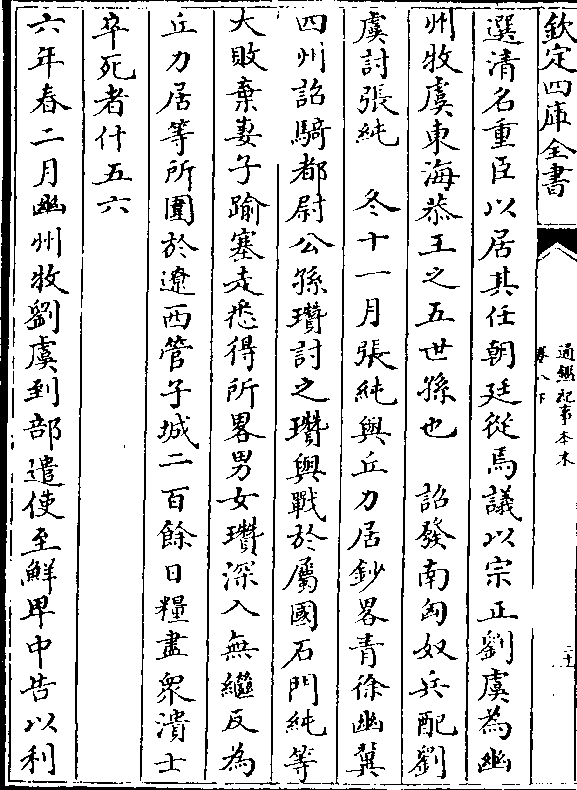 欽定四庫全書
通鑑紀事本末
卷八下
選清名重臣以居其任朝廷從焉議以宗正劉虞為幽
州牧虞東海恭王之五世孫也 詔發南匈奴兵配劉
虞討張純 冬十一月張純與丘力居鈔畧青徐幽冀
四州詔騎都尉公孫瓚討之瓚與戰於屬國石門純等
大敗棄妻子踰塞走悉得所畧男女瓚深入無繼反為
丘力居等所圍於遼西管子城二百餘日糧盡衆潰士
卒死者什五六
六年春二月幽州牧劉虞到部遣使至鮮卑中告以利